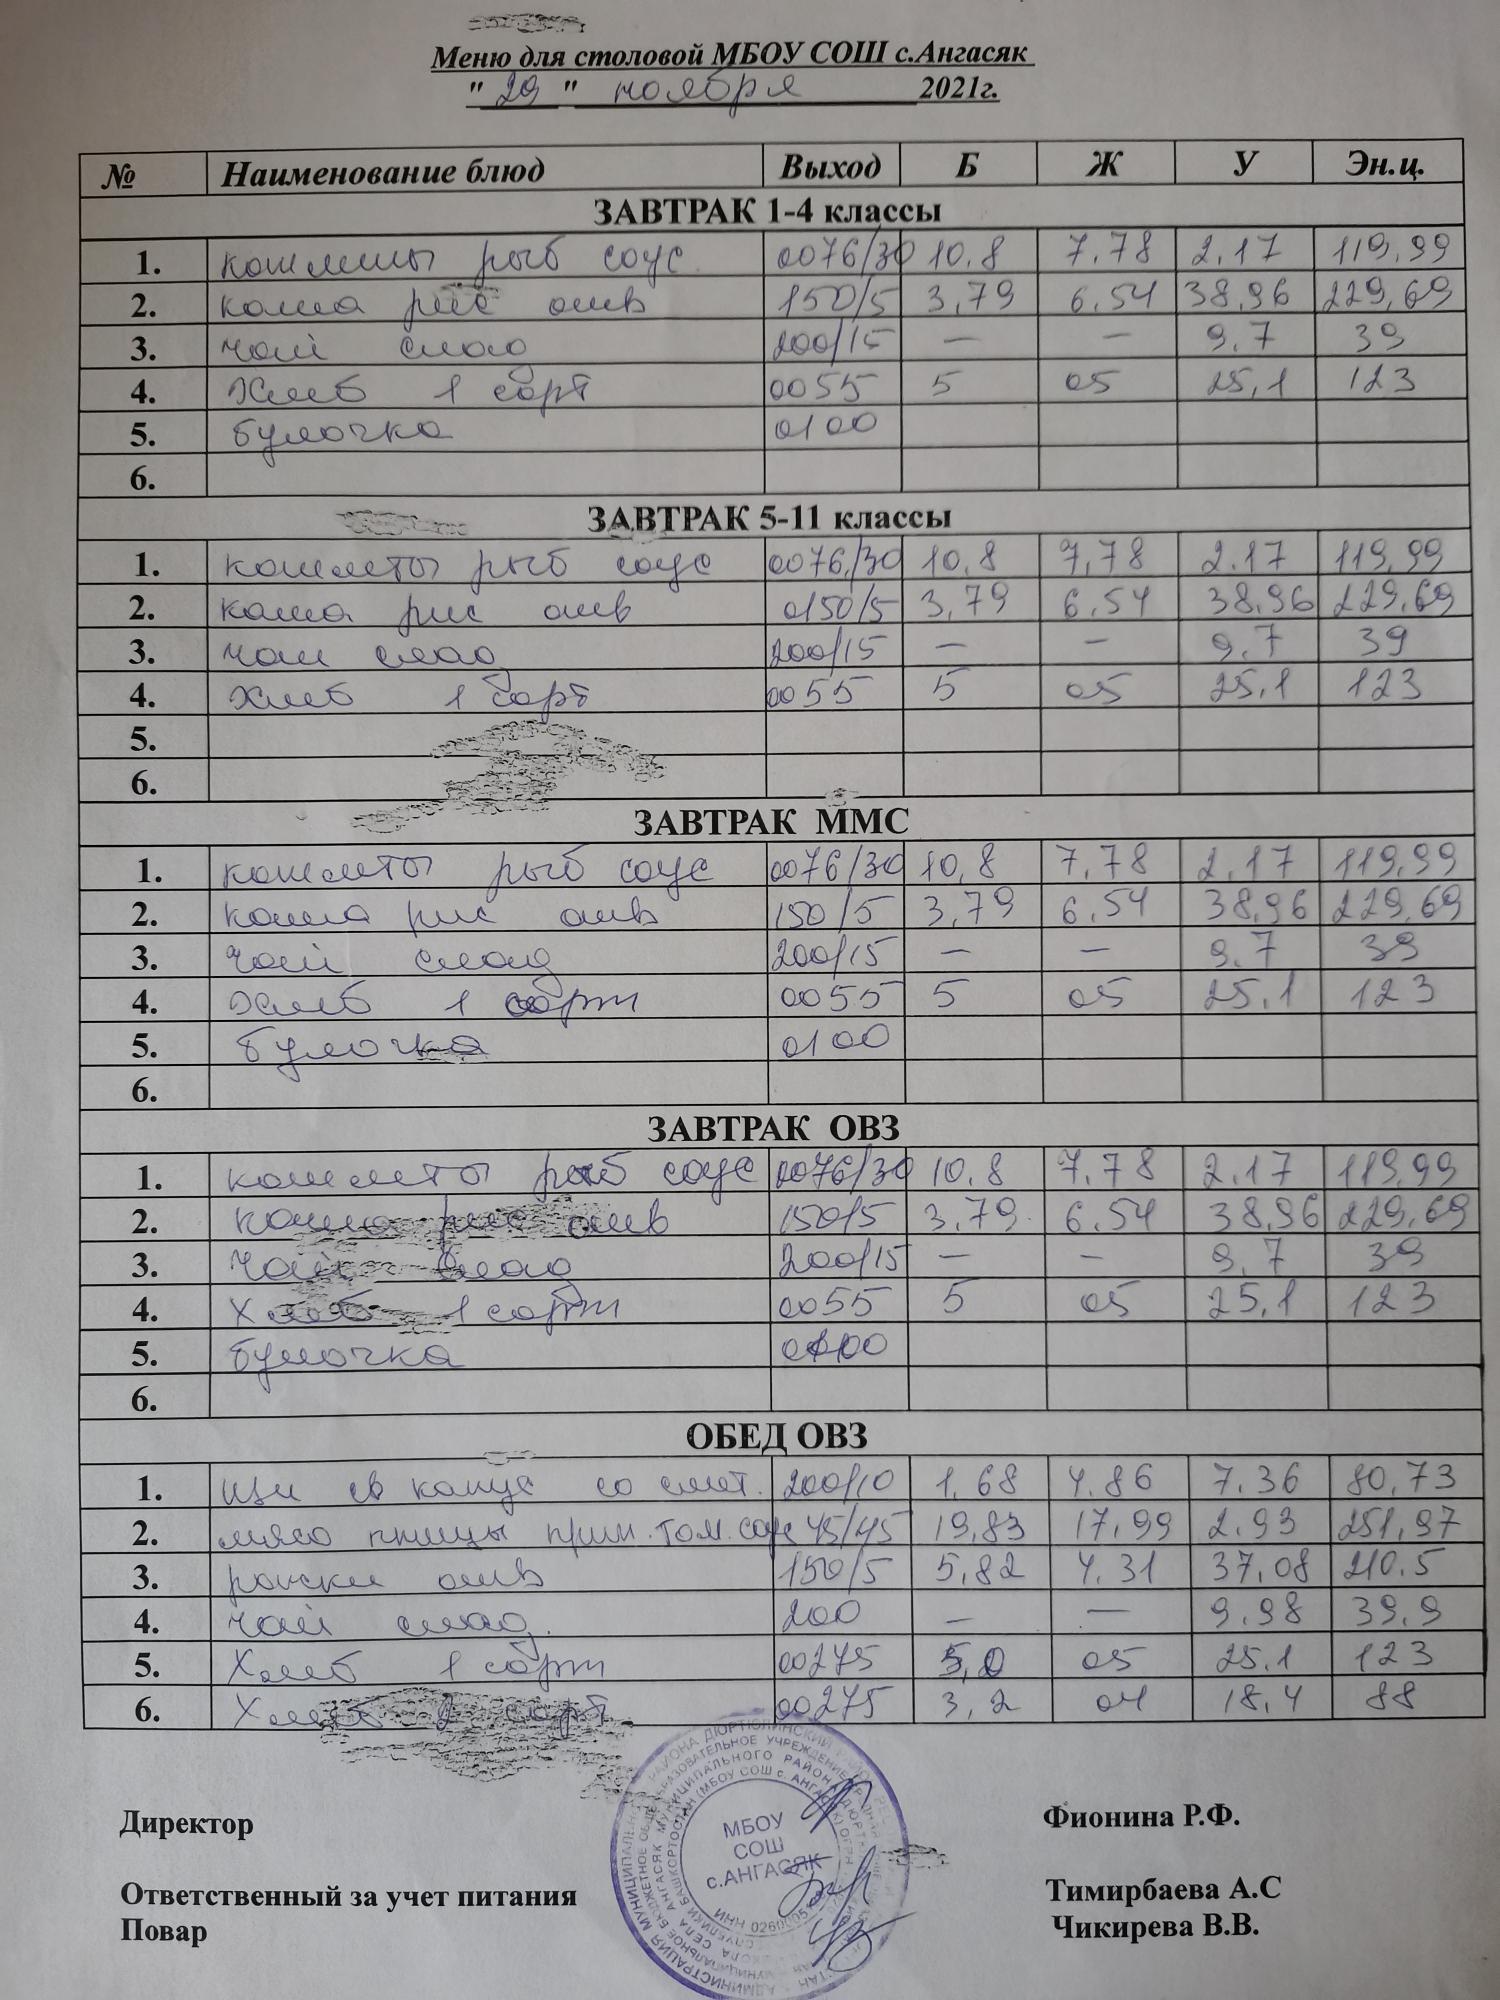 Меню для столовой МБОУ СОШ с.Ангасяк
"29" ноября 2021г.
№ Наименование блюд Выход Б Ж У Эн.ц.
ЗАВТРАК 1-4 классы
1. котлеты рыб соус 0076/30 10,8 7,78 2,17 119,99
2. каша рис омв 150/5 3,79 6,54 38,96 229,69
3. чай слад 200/15 — — 9,7 39
4. Хлеб 1 сорт 0055 5 05 25,1 123
5. булочка 0100
6.
ЗАВТРАК 5-11 классы
1. котлеты рыб соус 0076/30 10,8 7,78 2.17 119,99
2. каша рис омв 0150/5 3,79 6,54 38,96 229,69
3. чай слад 200/15 — — 9,7 39
4. Хлеб 1 сорт 0055 5 05 25,1 123
5.
6.
ЗАВТРАК ММС
1. котлеты рыб соус 0076/30 10,8 7,78 2,17 119,99
2. каша рис омв 150/5 3,79 6,54 38,96 229,69
3. чай слад 200/15 — — 9,7 39
4. Хлеб 1 сорт 0055 5 05 25,1 123
5. булочка 0100
6.
ЗАВТРАК ОВЗ
1. котлеты рыб соус 0076/30 10,8 7,78 2,17 119,99
2. каша рис омв 150/5 3,79 6,54 38,96 229,69
3. Чай слад 200/15 — — 9,7 39
4. Хлеб 1 сорт 0055 5 05 25,1 123
5. булочка 0100
6.
ОБЕД ОВЗ
1. Щи св капус со смет. 200/10 1,68 4.86 7.36 80,73
2. мясо птицы прип. том. соус 45/45 19,83 17,99 2.93 251,97
3. рожки омв 150/5 5,82 4,31 37,08 210.5
4. чай слад. 200 — — 9,98 39,9
5. Хлеб 1 сорт 00275 5,0 05 25.1 123
6. Хлеб 2 сорт 00275 3,2 04 18,4 88
Директор Фионина Р.Ф.
МБОУ
СОШ
с.АНГАСЯК
Ответственный за учет питания Тимирбаева А.С
Повар Чикирева В.В.